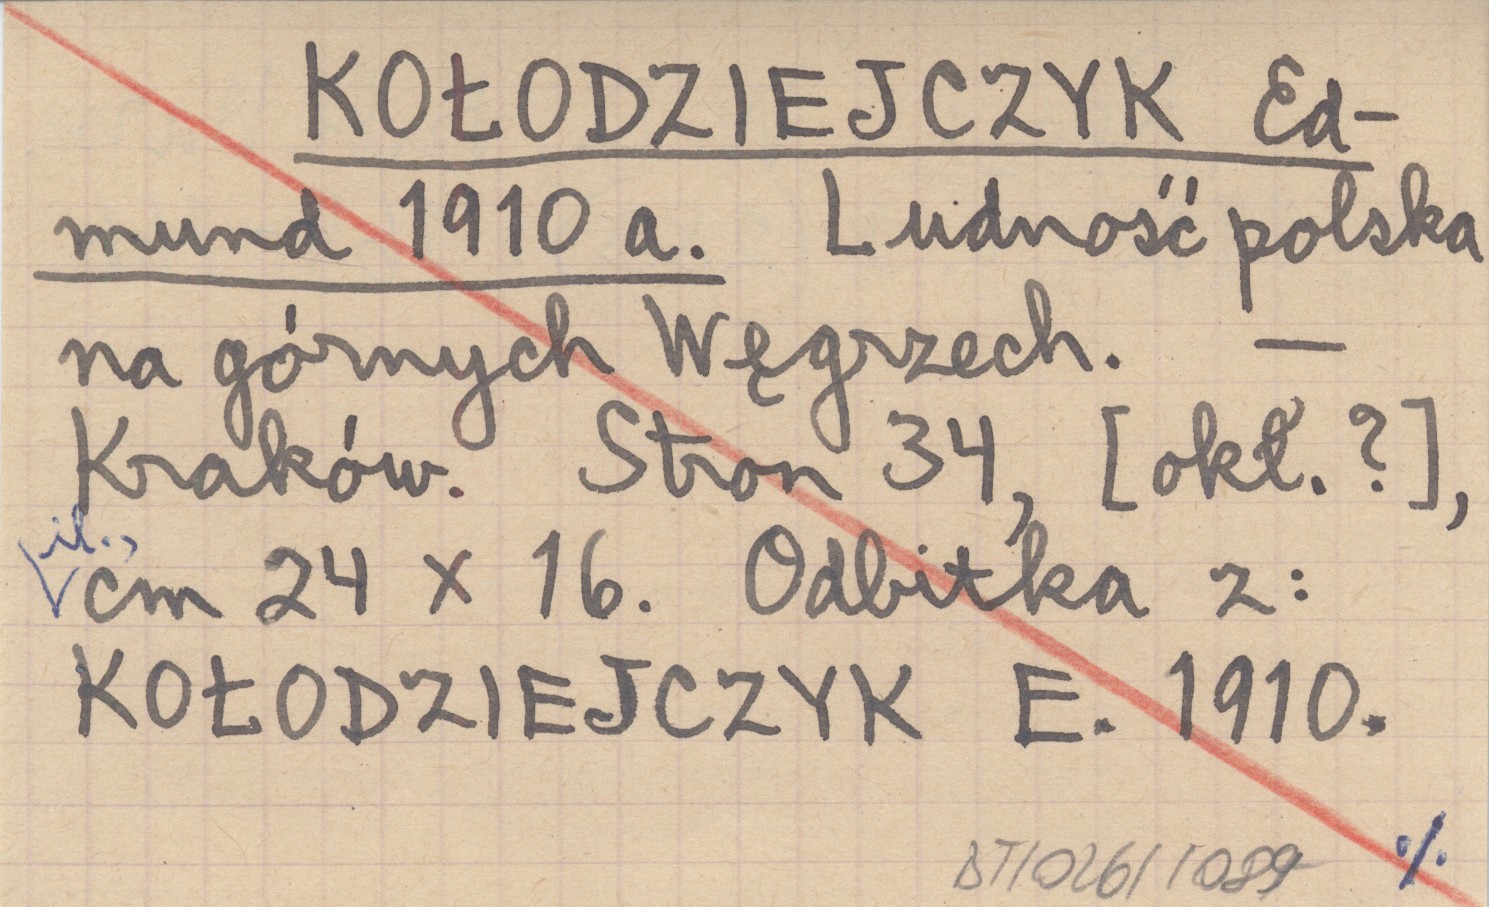 KOŁODZIEJCZYK Ed-
mund 1910 a. Ludność polska
na górnych Węgrzech. —
Kraków. Stron 34, [okł. ?],
il.,
cm 24 x 16. Odbitka z:
KOŁODZIEJCZYK E. 1910.
·/·
DT/026/1089